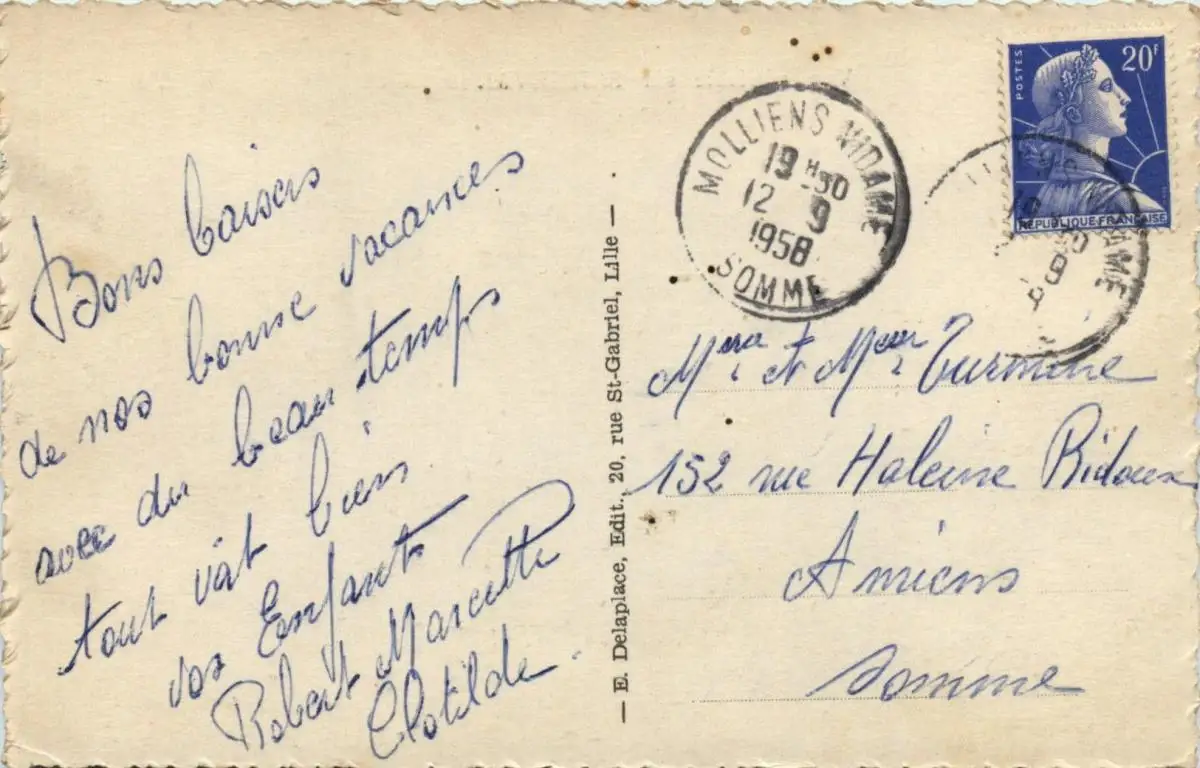 Bons baisers
de nos bonne vacances
avec du beau temps
tout vàt bien
vos Enfants
Robert Marcette
Clotilde.
— E. Delaplace, Edit., 20, rue St-Gabriel, Lille —
MOLLIENS VIDAME
19 H 30
12 9
1958
SOMME
POSTES
20F
REPUBLIQUE FRANÇAISE
et
152 rue Haleine Ridoux
Amiens
Somme